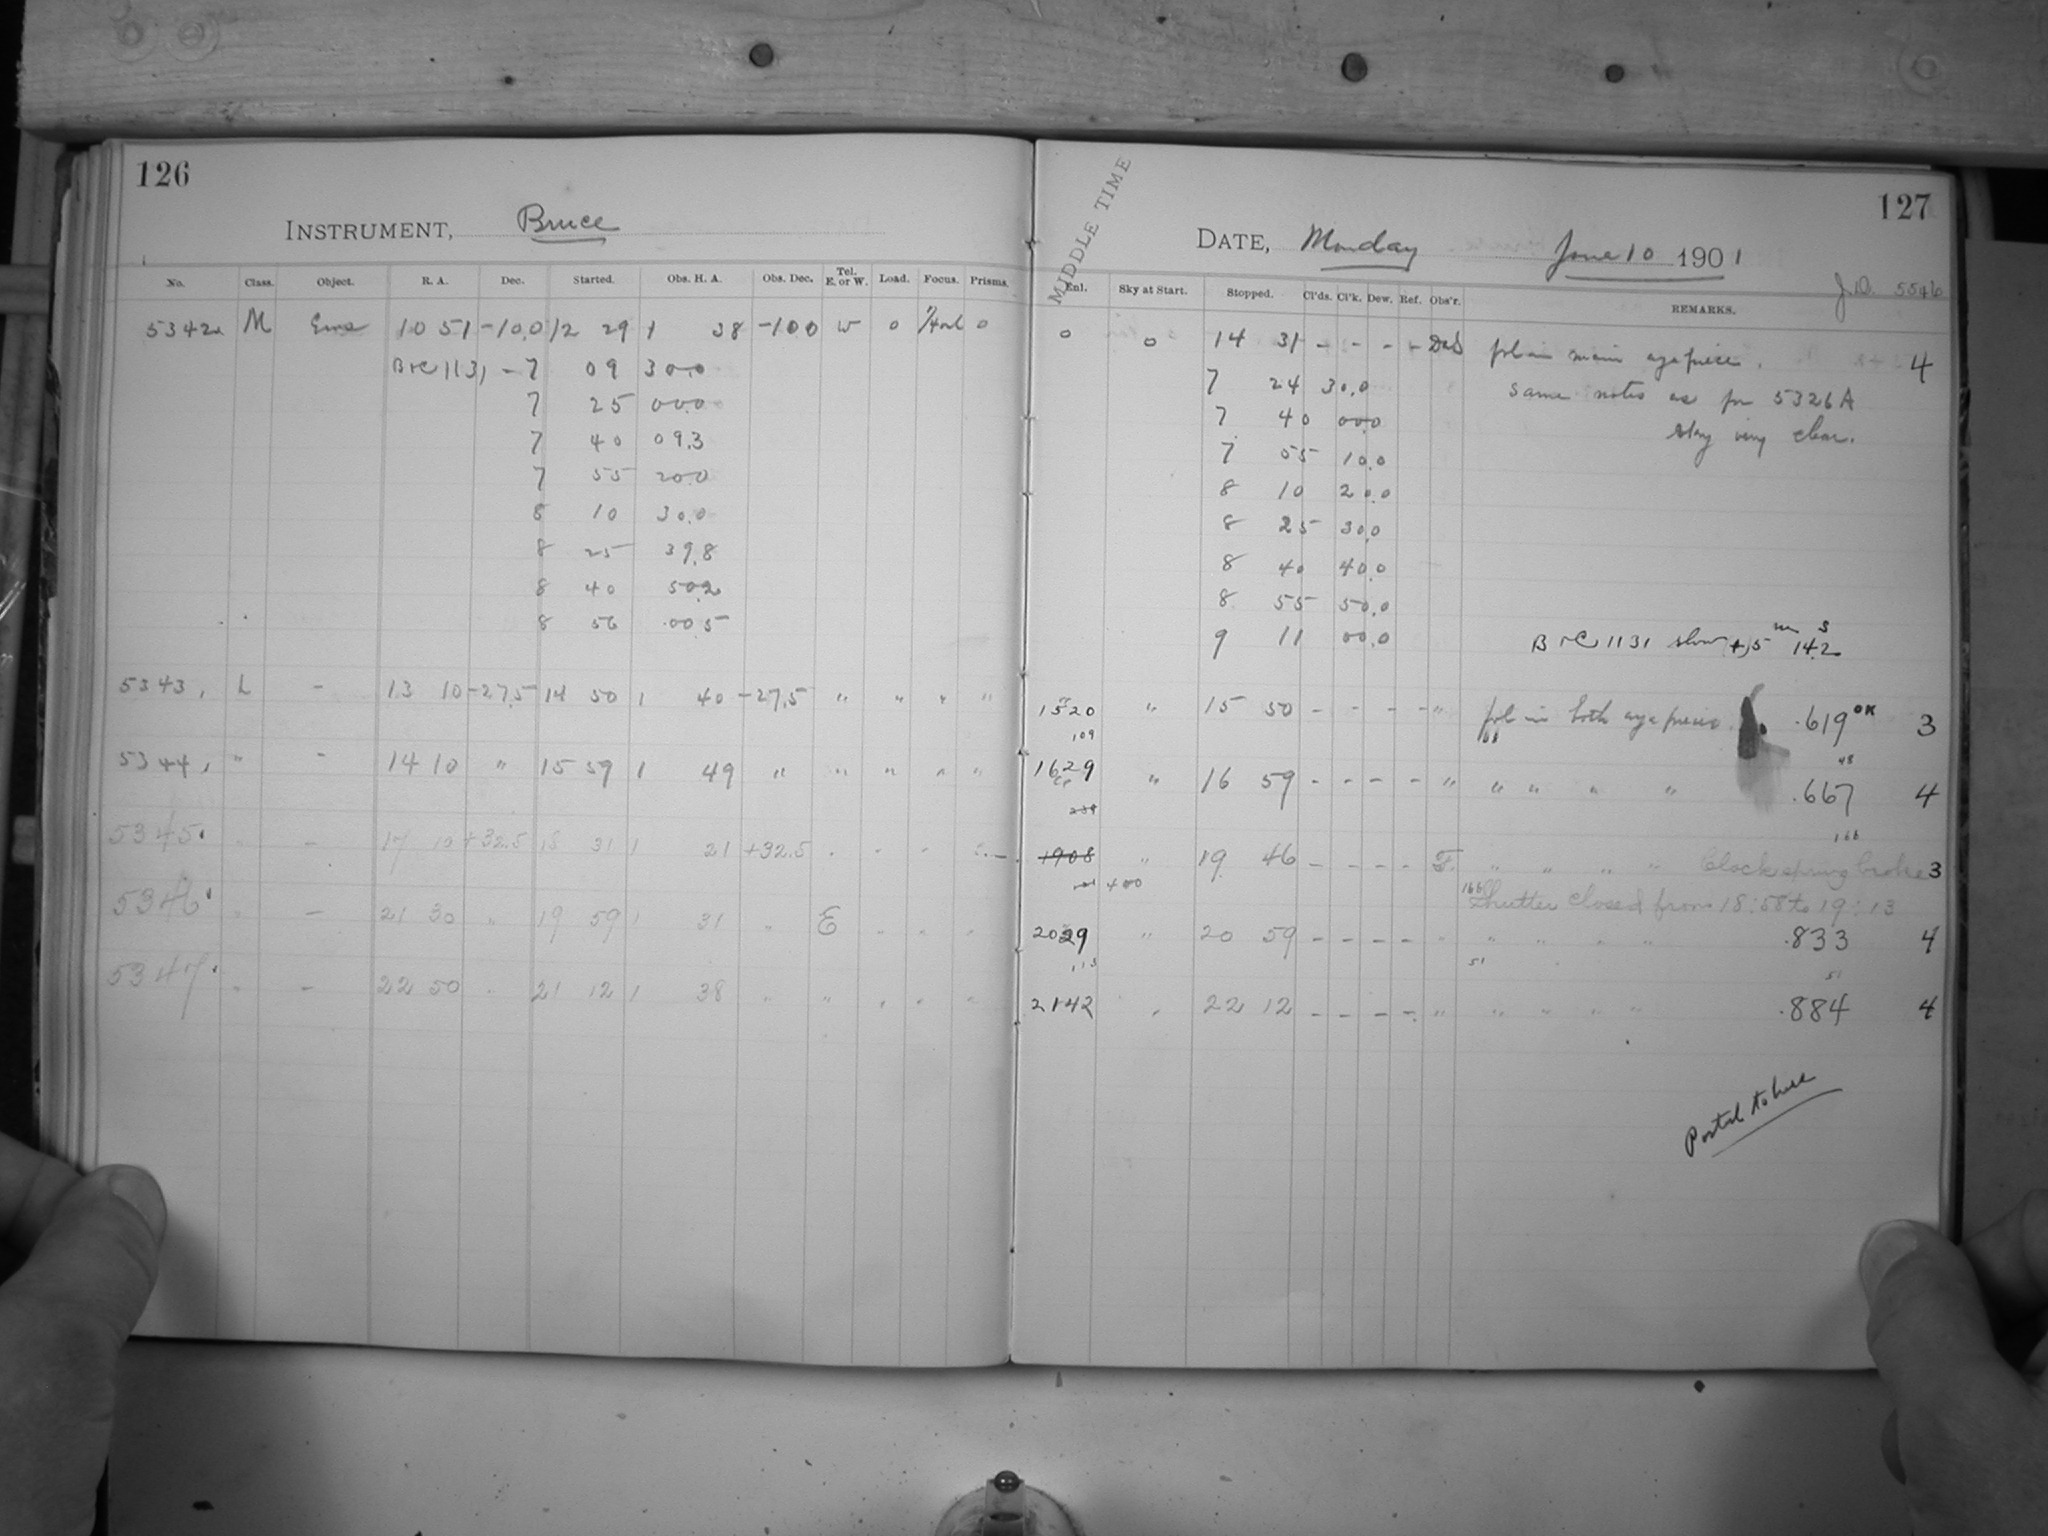 126
INSTRUMENT, Bruce
No. Class. Object. R. A. Dec. Started. Obs. H. A. Obs. Dec. Tel. E. or W. Load. Focus. Prisms.
5342a M Eros 10 51 -10.0 12 29 1 38 -10.0 W 0 0
B+C 1131 - 7 09 30.0
7 25 00.0
7 40 09.3
7 55 20.0
8 10 30.0
8 25 39.8
8 40 50.2
8 56 00.5
5343, L - 13 10 -27.5 14 50 1 40 -27.5 " " " "
5344, " - 14 10 " 15 59 1 49 " " " " "
5345. " - 17 10 +32.5 18 31 1 21 +32.5 " " "
5346. " - 21 30 " 19 59 1 31 " E " " "
5347. " - 22 50 " 21 12 1 38 " " " " "
MIDDLE TIME
127
DATE, Monday June 10 1901
J.D. 5546
Enl. Sky at Start. Stopped. Cl'ds. Cl'k. Dew. Ref. Obs'r. REMARKS.
0 0 14 31 - - - - fol in main eyepiece. 4
7 24 30.0 same notes as for 5326A
7 40 00.0 sky very clear.
7 55 10.0
8 10 20.0
8 25 30.0
8 40 40.0
8 55 50.0
9 11 00.0 B+C 1131 slow +, 5 m 14.2 s
1520 " 15 50 - - - - " fol in both eyepieces. .619 OK 3
109
48
1629 " 16 59 - - - - " " " " " .667 4
239
166
1908 " 19 46 - - - - F. " " " " Clock spring broke 3
400
166
Shutter closed from 18:58 to 19:13
2029 " 20 59 - - - - " " " " " .833 4
113
51
51
2142 " 22 12 - - - - " " " " " .884 4